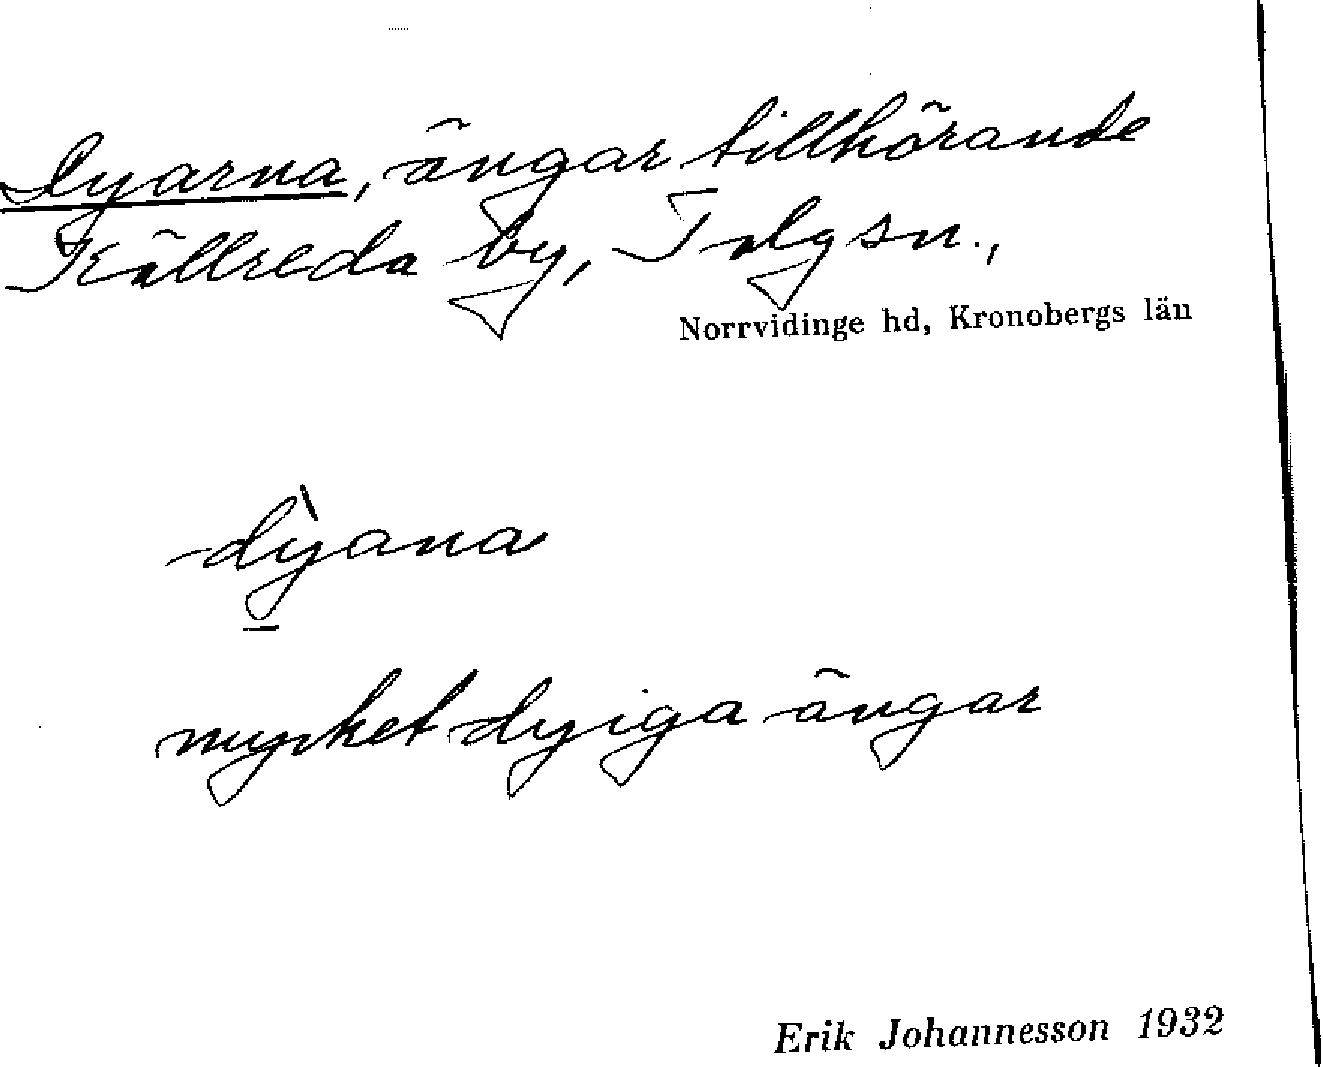 Dyarna, ängar tillhörande
Källreda by, Tolg sn.,
Norrvidinge hd, Kronobergs län
dỳana
mycket dyiga ängar
Erik Johannesson 1932